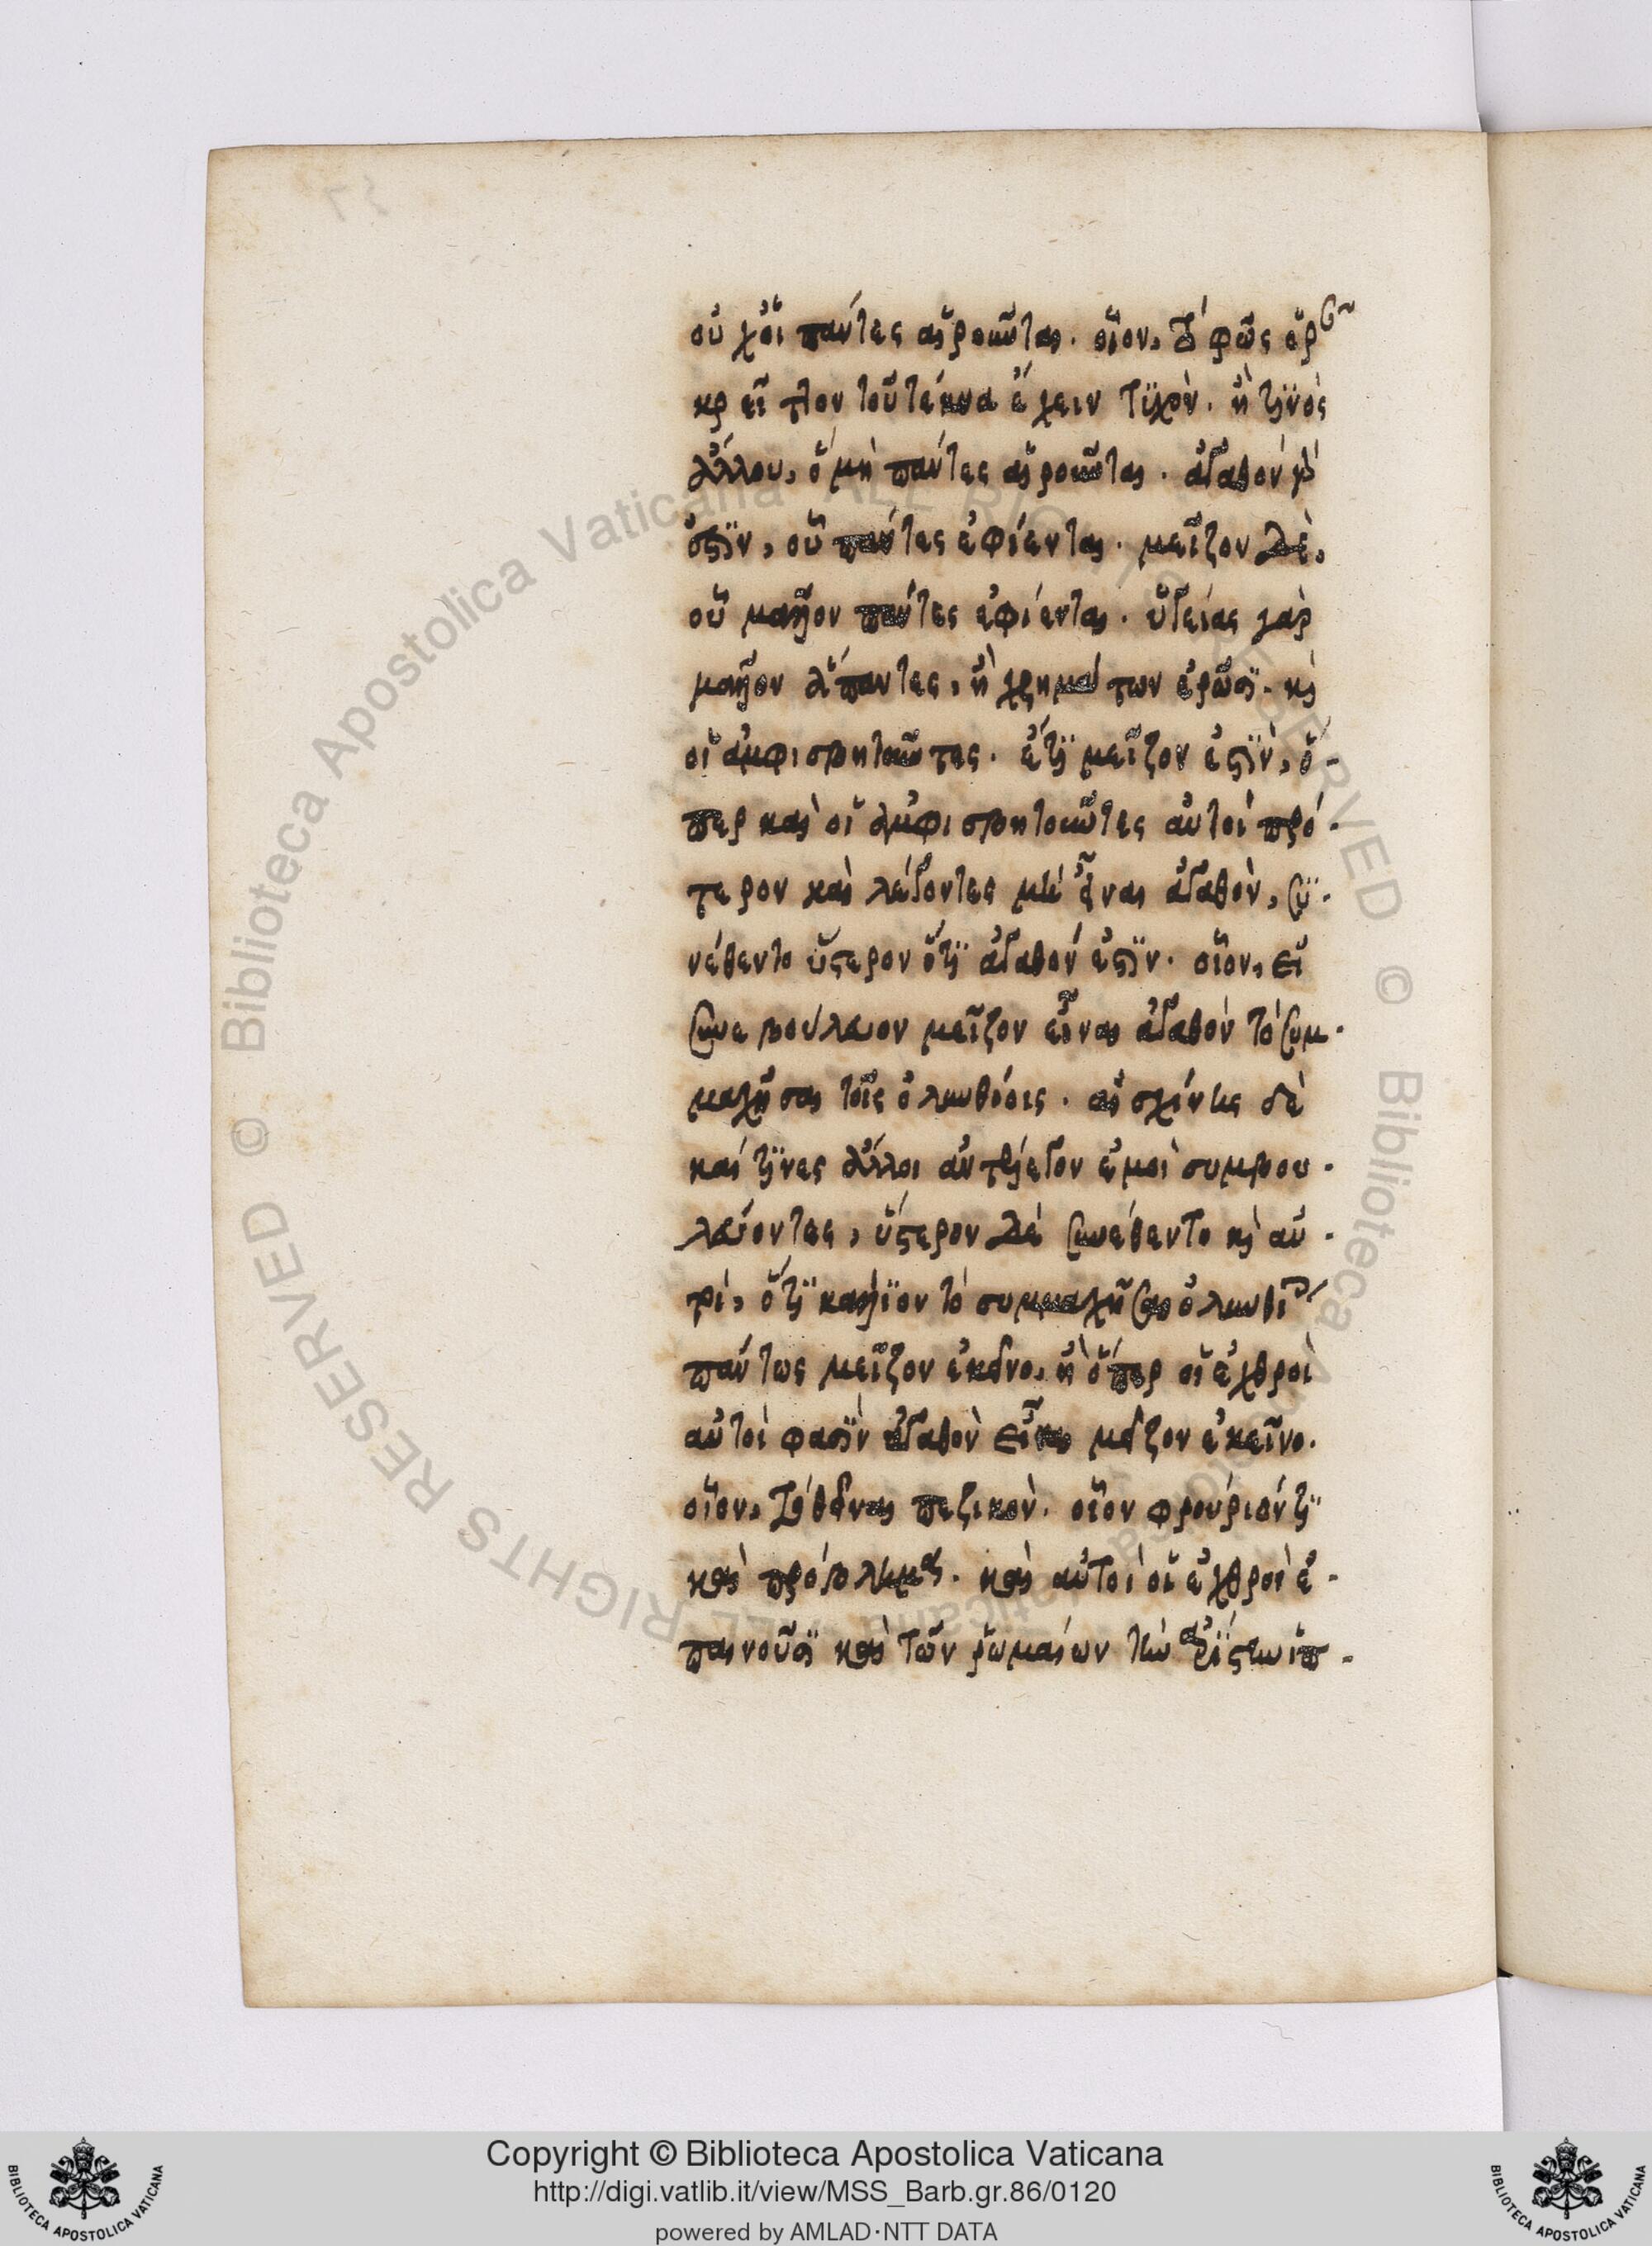 οὐχ οἱ πάντες αἱροῦνται. οἷον, τὸ φῶς ὁρᾶν
κρεῖττον τοῦ τέκνα ἔχειν τυχὸν. ἢ τινὸς
ἄλλου, ὃ μὴ πάντες αἱροῦνται. ἀγαθόν μέν
ἐστιν, οὗ πάντες ἐφίενται. μεῖζον δὲ,
οὗ μᾶλλον πάντες ἐφίενται. ὑγείας γὰρ
μᾶλλον ἅπαντες, ἢ χρημάτων ἐρῶσι. καὶ
οἱ ἀμφισβητοῦντες. ἔτι μεῖζον ἐστὶν, ὅ-
περ καὶ οἱ ἀμφισβητοῦντες αὐτοὶ πρό-
τερον καὶ λέγοντες μὴ εἶναι ἀγαθὸν, συ-
νέθεντο ὕστερον ὅτι ἀγαθόν ἐστιν. οἷον, εἰ
συνεβούλευον μεῖζον εἶναι ἀγαθὸν τὸ συμ-
μαχῆσαι τοῖς ὀλυνθίοις. αἰσχίνης δὲ
καί τινες ἄλλοι ἀντέλεγον ἐμοὶ συμβου-
λεύοντες, ὕστερον δὲ συνέθεντο καὶ αὐ-
τοὶ, ὅτι κάλλιον τὸ συμμαχῆσαι ὀλυνθίοις
πάντως μεῖζον ἐκεῖνο, ἢ ὅπερ οἱ ἐχθροὶ
αὐτοὶ φασὶν ἀγαθὸν εἶναι μεῖζον ἐκεῖνο.
οἷον, πεζικὸν. οἷον φρούριόν τι
καὶ πρόβλημα. καὶ αὐτοὶ οἱ ἐχθροὶ ἐ-
παινοῦσι καὶ τῶν ῥωμαίων τὴν ἀρίστην ἱπ-
Copyright © Biblioteca Apostolica Vaticana
http://digi.vatlib.it/view/MSS_Barb.gr.86/0120
powered by AMLAD·NTT DATA